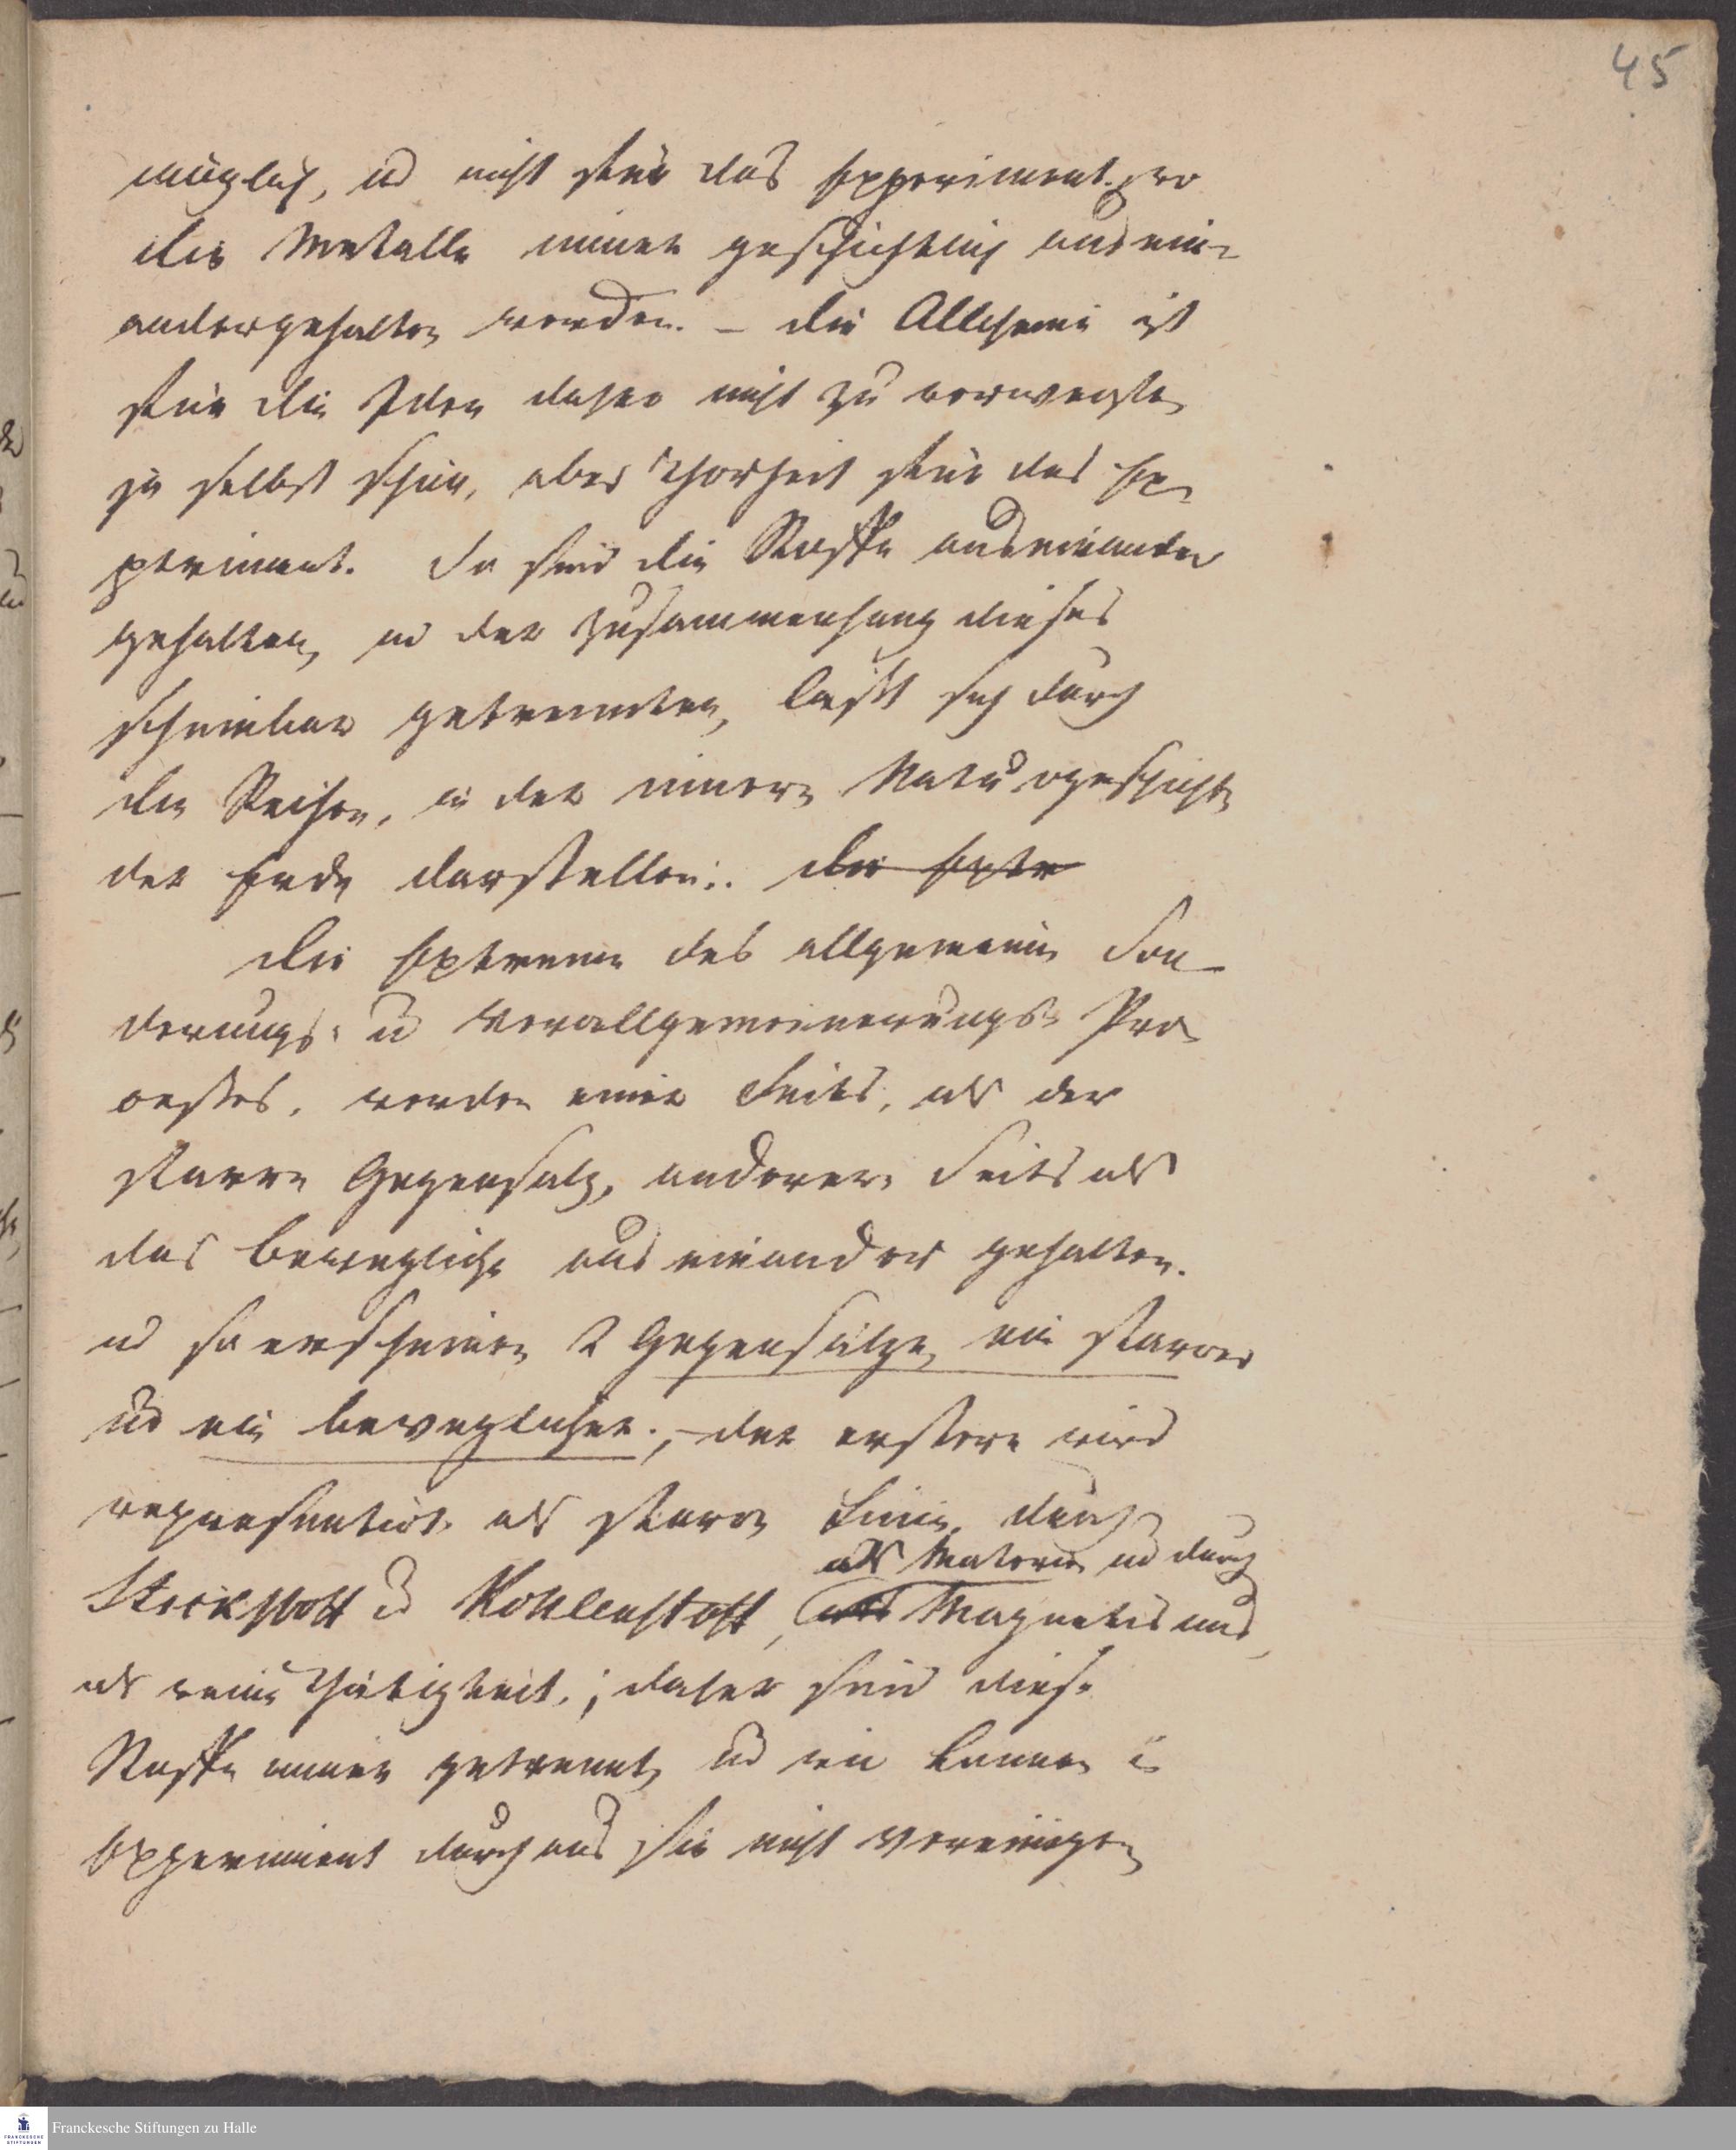 45
möglich, ud nicht für das Experiment, wo
die Metalle immer geschichtlich ausein-
andergehalten werden. – die Alchemie ist
für die Idee daher nicht zu verwerfen
ja selbst schön, aber Thorheit für das Ex-
periment. So sind die Stoffe auseinander
gehalten, ud der Zusammenhang dieses
scheinbar getrennten, läßt sich durch
die Reihen, in der innern Naturgeschichte
der Erde darstellen:. die Extr
Die Extreme des allgemeinen Son-
derungs- u Verallgemeinerungs- Pro-
cesses, werden einer Seits, als der
starre Gegensatz, anderer Seits als
das bewegliche aus einander gehalten.
ud so erscheinen 2 Gegensätze, ein starrer
ud ein beweglicher.; – der erstere wird
repraesentirt als starre Linie, durch
als Materie ud durch
Stickstoff u Kohlenstoff, Magnetismus,
als reine Thätigkeit.; daher sind diese
Stoffe immer getrennt, ud wir können im
Experiment durchaus sie nicht vereinigen
Franckesche Stiftungen zu Halle